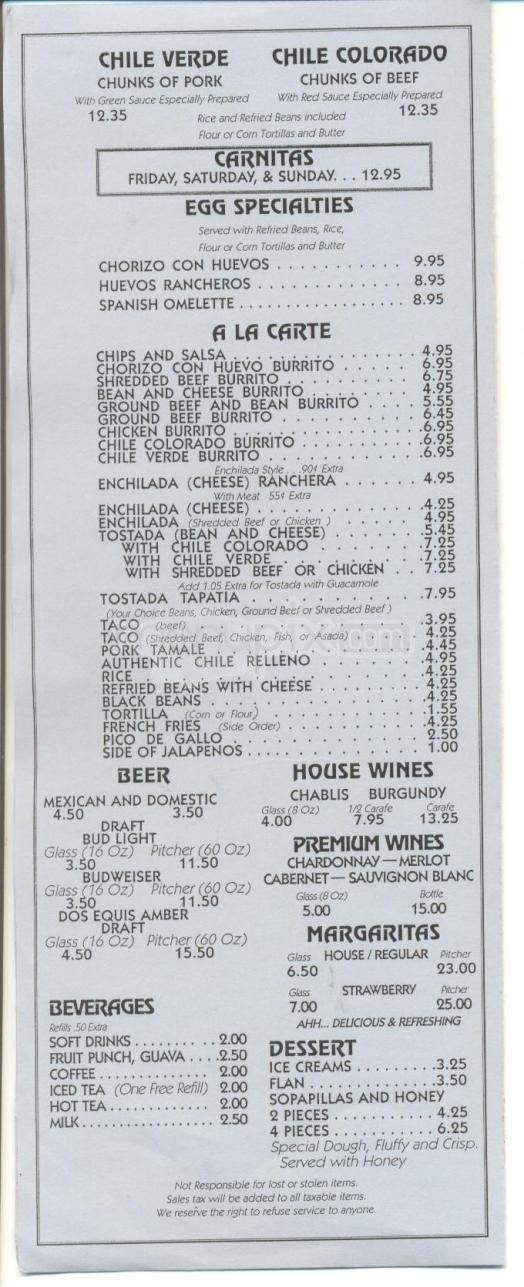 CHILE VERDE CHILE COLORADO
CHUNKS OF PORK CHUNKS OF BEEF
With Green Sauce Especially Prepared With Red Sauce Especially Prepared
12.35 Rice and Refried Beans included 12.35
Flour or Corn Tortillas and Butter
CARNITAS
FRIDAY, SATURDAY, & SUNDAY. . . 12.95
EGG SPECIALTIES
Served with Refried Beans, Rice,
Flour or Corn Tortillas and Butter
CHORIZO CON HUEVOS . . . . . . . . . . . 9.95
HUEVOS RANCHEROS . . . . . . . . . . . 8.95
SPANISH OMELETTE . . . . . . . . . . . . . . . 8.95
A LA CARTE
CHIPS AND SALSA . . . . . . . . . . . . . . . 4.95
CHORIZO CON HUEVO BURRITO . . . . . . 6.95
SHREDDED BEEF BURRITO . . . . . . . . . . 6.75
BEAN AND CHEESE BURRITO . . . . . . . . 4.95
GROUND BEEF AND BEAN BURRITO . . . . 5.55
GROUND BEEF BURRITO . . . . . . . . . . . 6.45
CHICKEN BURRITO . . . . . . . . . . . . . . .6.95
CHILE COLORADO BURRITO . . . . . . . . .6.95
CHILE VERDE BURRITO . . . . . . . . . . . .6.95
Enchilada Style . . .90¢ Extra
ENCHILADA (CHEESE) RANCHERA . . . . . . 4.95
With Meat 55¢ Extra
ENCHILADA (CHEESE) . . . . . . . . . . . . .4.25
ENCHILADA (Shredded Beef or Chicken ) . . . . . . 4.95
TOSTADA (BEAN AND CHEESE) . . . . . . .5.45
WITH CHILE COLORADO . . . . . . . . .7.25
WITH CHILE VERDE . . . . . . . . . . . .7.25
WITH SHREDDED BEEF OR CHICKEN . . 7.25
Add 1.05 Extra for Tostada with Guacamole
TOSTADA TAPATIA . . . . . . . . . . . . . .7.95
(Your Choice Beans, Chicken, Ground Beef or Shredded Beef )
TACO (beef) . . . . . . . . . . . . . . . . .3.95
TACO (Shredded Beef, Chicken, Fish, or Asada) . . . . . 4.25
PORK TAMALE . . . . . . . . . . . . . . . .4.45
AUTHENTIC CHILE RELLENO . . . . . . . . .4.95
RICE . . . . . . . . . . . . . . . . . . . . .4.25
REFRIED BEANS WITH CHEESE . . . . . . . .4.25
BLACK BEANS . . . . . . . . . . . . . . . . .4.25
TORTILLA (Corn or Flour) . . . . . . . . . . . .1.55
FRENCH FRIES (Side Order) . . . . . . . . . . .4.25
PICO DE GALLO . . . . . . . . . . . . . . . 2.50
SIDE OF JALAPENOS . . . . . . . . . . . . . 1.00
BEER
MEXICAN AND DOMESTIC
4.50 3.50
DRAFT
BUD LIGHT
Glass (16 Oz) Pitcher (60 Oz)
3.50 11.50
BUDWEISER
Glass (16 Oz) Pitcher (60 Oz)
3.50 11.50
DOS EQUIS AMBER
DRAFT
Glass (16 Oz) Pitcher (60 Oz)
4.50 15.50
HOUSE WINES
CHABLIS BURGUNDY
Glass (8 Oz) 1/2 Carafe Carafe
4.00 7.95 13.25
PREMIUM WINES
CHARDONNAY — MERLOT
CABERNET — SAUVIGNON BLANC
Glass (8 Oz) Bottle
5.00 15.00
MARGARITAS
Glass HOUSE / REGULAR Pitcher
6.50 23.00
Glass STRAWBERRY Pitcher
7.00 25.00
AHH... DELICIOUS & REFRESHING
BEVERAGES
Refills .50 Extra
SOFT DRINKS . . . . . . . . . . 2.00
FRUIT PUNCH, GUAVA . . . .2.50
COFFEE . . . . . . . . . . . . . . 2.00
ICED TEA (One Free Refill) 2.00
HOT TEA . . . . . . . . . . . . . 2.00
MILK . . . . . . . . . . . . . . . . . 2.50
DESSERT
ICE CREAMS . . . . . . . . .3.25
FLAN . . . . . . . . . . . . . . .3.50
SOPAPILLAS AND HONEY
2 PIECES . . . . . . . . . . . 4.25
4 PIECES . . . . . . . . . . . 6.25
Special Dough, Fluffy and Crisp.
Served with Honey
Not Responsible for lost or stolen items.
Sales tax will be added to all taxable items.
We reserve the right to refuse service to anyone.